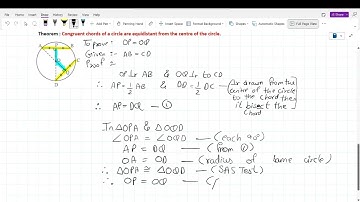 Theorem : Congruent chords of a circle are equidistant from the centre of the circle.
To prove : OP = OQ
Given :- AB = CD
Proof :-
OP ⊥ AB & OQ ⊥ to CD
∴ AP = 1/2 AB & DQ = 1/2 DC — (⊥ar drawn from the
centre of the circle
to the chord then
it bisect the
chord
∴ AP = DQ — ①
In △OPA & △OQD
∠OPA = ∠OQD — (each 90)
AP = DQ — (from ①)
OA = OD — (radius of same circle)
∴ △OPA ≅ △OQD — (SAS Test)
∴ OP = OQ — (